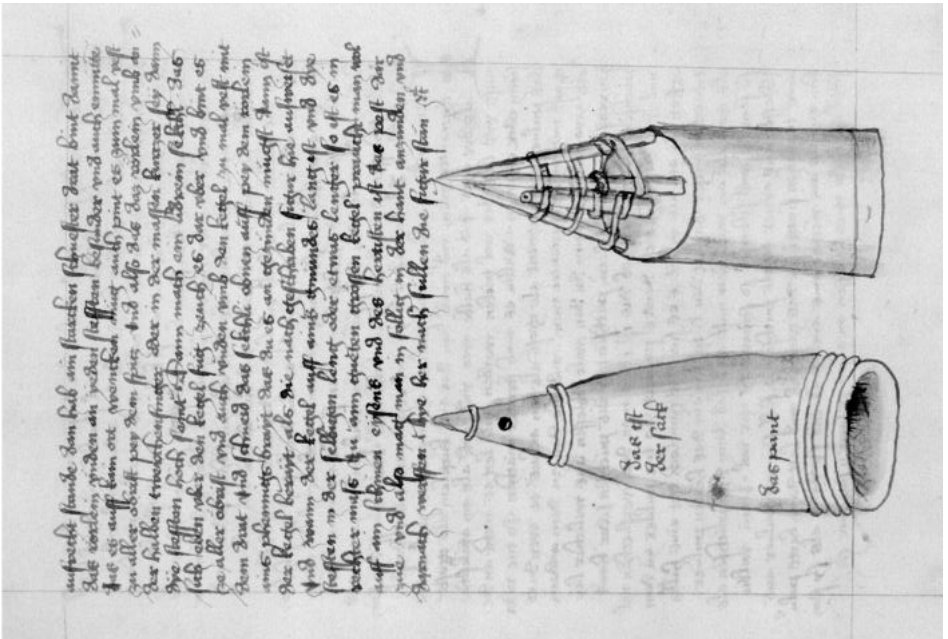 aufrecht stande dan hab ain starcken schuester drat bint damit
das vordem vnden an yeden steften besunder vnd auch
das es auff kain ort wencken müg auch pint es zum mal vest
zu aller obrist pey dem spitz vnd alss das das vordem vmb
der halben zwerchen finger oder in der massen kurtzer sey dann
die steften noch dann mach ein lidrein seklin das
sich eben vber den kegel füg zeuch es dar vber vnd bint es
ze aller obrist vnd auch vnden vmb den kegel zu mal vest mit
dem drat vnd schneid das seklin obnen auff pey dem vordem
ains phennings brait das du es an gezünden mügst dann ist
der kegel berait als die nach geschriben figur hie ausweiset
vnd wann der kegel auff ains gmündes lanck ist vnd die
steften in der selben leng oder etwas lenger so ist es in
rechter mass Zu aim gueten grossen kegel praucht man wol
auff eysens vnd des herttisten ist das pest dar
zue vnd also mag man in in der hant anzünden vnd
darnach werffen her nach sullen die figur stan
das ist
der sack
das pint